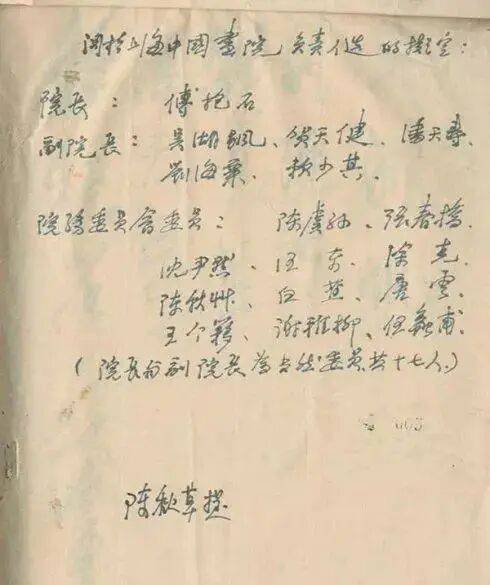 关于上海中國画院负责人选的拟定:
院长: 傅抱石
副院长: 吴湖颿、贺天健、潘天寿、
劉海粟、赖少其.
院务委员會委员: 陈虞孙、張春橋、
沈尹默、汪东、涂克、
陈秋草、白蕉、唐雲、
王个簃、谢稚柳、伍蠡甫、
(院长与副院长为当然委员共十七人.)
陈秋草拟